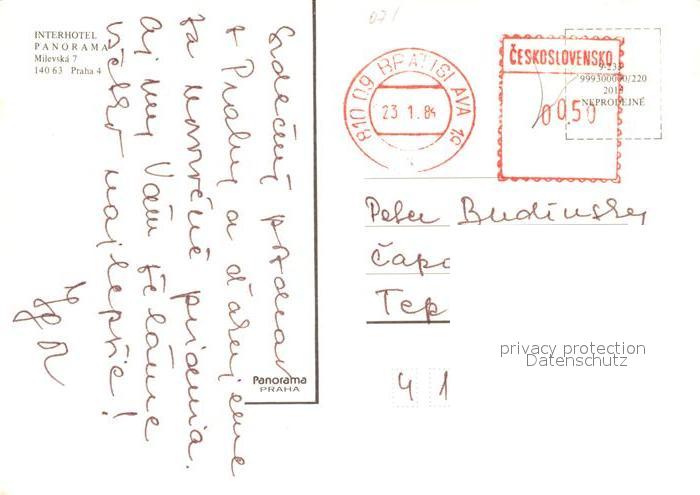 INTERHOTEL
PANORAMA
Milevská 7
140 63 Praha 4
Srdečný pozdrav
z Prahy a ďakujeme
za novoročné priania.
Aj my Vám želáme
všetko najlepšie!
Panorama
PRAHA
07/
810 09 BRATISLAVA 19
23 1. 84
ČESKOSLOVENSKO
00.50
999300000/220
NEPRODEJNÉ
Peter Budinský
Čapa
Tep
41
privacy protection
Datenschutz